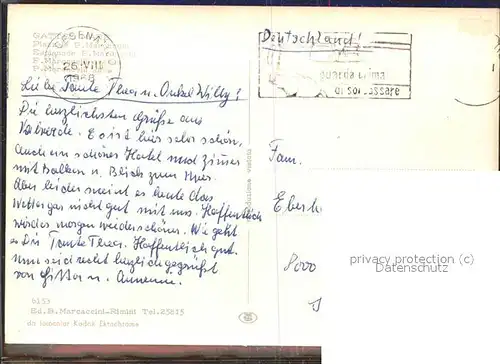 GATTE
Piazzale B.Marconi
CESENATICO
26.VIII
1968
Deutschland!
guarda prima
di sorpassare
Liebe Tante Thea u. Onkel Willy!
Die herzlichsten Grüße aus
Es ist hier sehr schön,
Auch ein schönes Hotel und Zimmer
mit Balkon u. Blick zum Meer.
Aber leider meint es heute das
Wetter gar nicht gut mit uns. Hoffentlich
wird es morgen wieder schöner. Wie geht
es Dir Tante Thea. Hoffentlich gut.
Nun seid recht herzlich gegrüßt
von Gitta u. Annemie.
Fam.
Eberh
8000
privacy protection (c)
Datenschutz
6153
Ed. B. Marcaccini-Rimini Tel.23815
da ioupencur Kodak Ektachrome